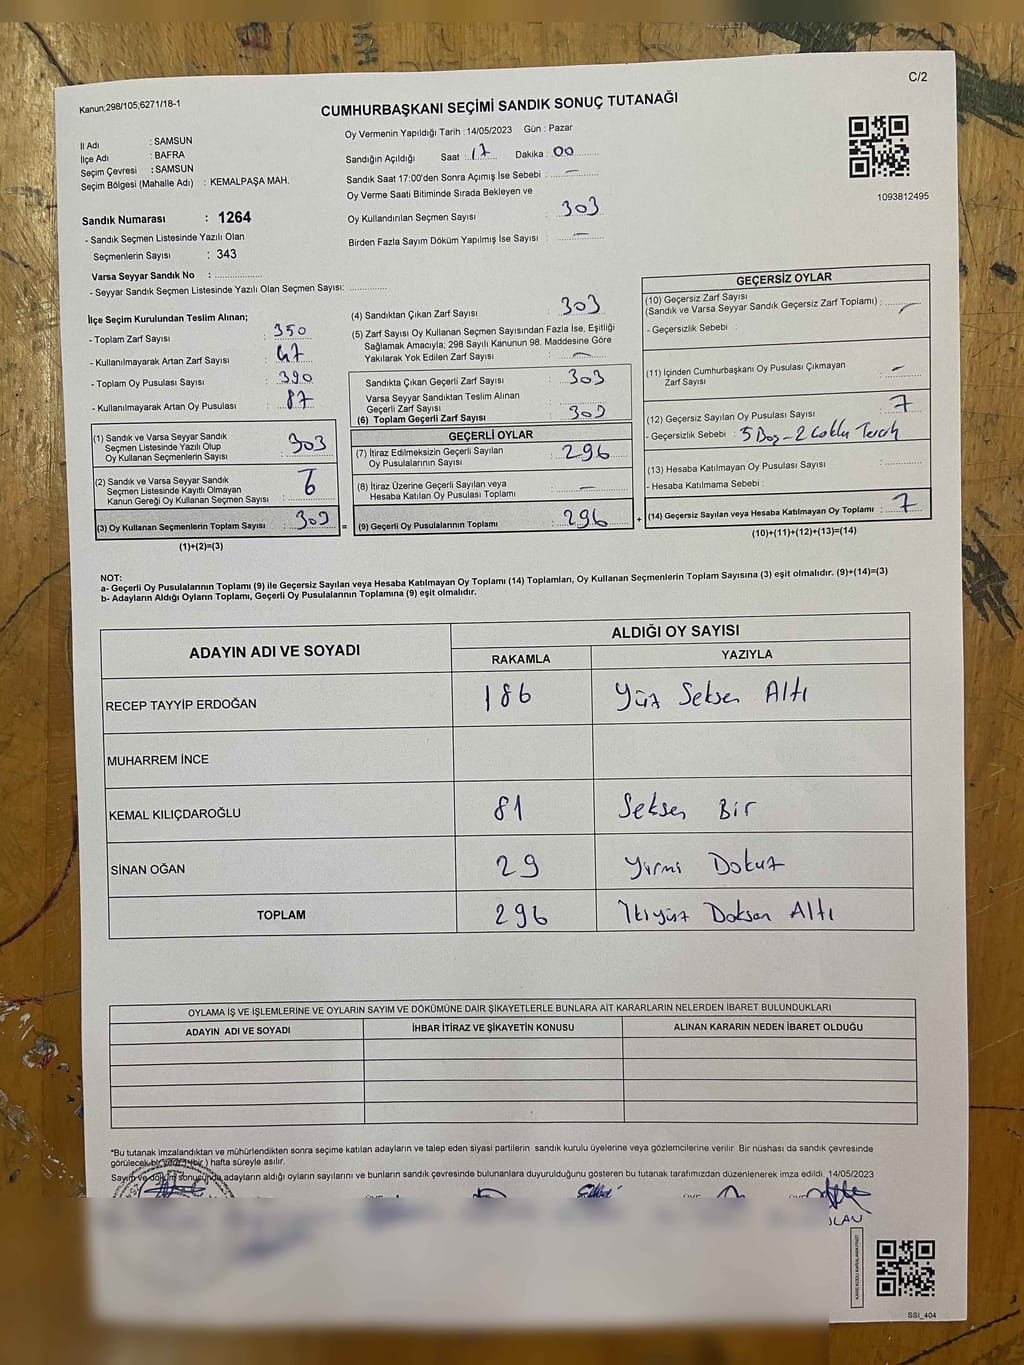 C/2
Kanun;298/105;6271/18-1
CUMHURBAŞKANI SEÇİMİ SANDIK SONUÇ TUTANAĞI
İl Adı : SAMSUN
İlçe Adı : BAFRA
Seçim Çevresi : SAMSUN
Seçim Bölgesi (Mahalle Adı) : KEMALPAŞA MAH.
Sandık Numarası : 1264
- Sandık Seçmen Listesinde Yazılı Olan
Seçmenlerin Sayısı : 343
Varsa Seyyar Sandık No : ..................
- Seyyar Sandık Seçmen Listesinde Yazılı Olan Seçmen Sayısı: .............
Oy Vermenin Yapıldığı Tarih : 14/05/2023 Gün : Pazar
Sandığın Açıldığı Saat : 17 Dakika : 00
Sandık Saat 17:00'den Sonra Açımış İse Sebebi : —
Oy Verme Saati Bitiminde Sırada Bekleyen ve
Oy Kullandırılan Seçmen Sayısı : 303
Birden Fazla Sayım Döküm Yapılmış İse Sayısı : —
1093812495
İlçe Seçim Kurulundan Teslim Alınan;
- Toplam Zarf Sayısı : 350
- Kullanılmayarak Artan Zarf Sayısı : 47
- Toplam Oy Pusulası Sayısı : 390
- Kullanılmayarak Artan Oy Pusulası : 87
(1) Sandık ve Varsa Seyyar Sandık
Seçmen Listesinde Yazılı Olup
Oy Kullanan Seçmenlerin Sayısı : 303
(2) Sandık ve Varsa Seyyar Sandık
Seçmen Listesinde Kayıtlı Olmayan
Kanun Gereği Oy Kullanan Seçmen Sayısı :
(3) Oy Kullanan Seçmenlerin Toplam Sayısı : 303 =
(1)+(2)=(3)
(4) Sandıktan Çıkan Zarf Sayısı : 303
(5) Zarf Sayısı Oy Kullanan Seçmen Sayısından Fazla İse, Eşitliği
Sağlamak Amacıyla; 298 Sayılı Kanunun 98. Maddesine Göre
Yakılarak Yok Edilen Zarf Sayısı : —
Sandıkta Çıkan Geçerli Zarf Sayısı : 303
Varsa Seyyar Sandıktan Teslim Alınan
Geçerli Zarf Sayısı :
(6) Toplam Geçerli Zarf Sayısı : 303
GEÇERLİ OYLAR
(7) İtiraz Edilmeksizin Geçerli Sayılan
Oy Pusulalarının Sayısı : 296
(8) İtiraz Üzerine Geçerli Sayılan veya
Hesaba Katılan Oy Pusulası Toplamı : —
(9) Geçerli Oy Pusulalarının Toplamı : 296 +
GEÇERSİZ OYLAR
(10) Geçersiz Zarf Sayısı
(Sandık ve Varsa Seyyar Sandık Geçersiz Zarf Toplamı) : —
- Geçersizlik Sebebi :
(11) İçinden Cumhurbaşkanı Oy Pusulası Çıkmayan
Zarf Sayısı : —
(12) Geçersiz Sayılan Oy Pusulası Sayısı : 7
- Geçersizlik Sebebi : 5 Boş - 2 Çoklu Tercih
(13) Hesaba Katılmayan Oy Pusulası Sayısı :
- Hesaba Katılmama Sebebi :
(14) Geçersiz Sayılan veya Hesaba Katılmayan Oy Toplamı : 7
(10)+(11)+(12)+(13)=(14)
NOT:
a- Geçerli Oy Pusulalarının Toplamı (9) ile Geçersiz Sayılan veya Hesaba Katılmayan Oy Toplamı (14) Toplamları, Oy Kullanan Seçmenlerin Toplam Sayısına (3) eşit olmalıdır. (9)+(14)=(3)
b- Adayların Aldığı Oyların Toplamı, Geçerli Oy Pusulalarının Toplamına (9) eşit olmalıdır.
ADAYIN ADI VE SOYADI ALDIĞI OY SAYISI
RAKAMLA YAZIYLA
RECEP TAYYİP ERDOĞAN 186 Yüz Seksen Altı
MUHARREM İNCE
KEMAL KILIÇDAROĞLU 81 Seksen Bir
SİNAN OĞAN 29 Yirmi Dokuz
TOPLAM 296 İkiyüz Doksan Altı
OYLAMA İŞ VE İŞLEMLERİNE VE OYLARIN SAYIM VE DÖKÜMÜNE DAİR ŞİKAYETLERLE BUNLARA AİT KARARLARIN NELERDEN İBARET BULUNDUKLARI
ADAYIN ADI VE SOYADI İHBAR İTİRAZ VE ŞİKAYETİN KONUSU ALINAN KARARIN NEDEN İBARET OLDUĞU
*Bu tutanak imzalandıktan ve mühürlendikten sonra seçime katılan adayların ve talep eden siyasi partilerin sandık kurulu üyelerine veya gözlemcilerine verilir. Bir nüshası da sandık çevresinde
görülecek bir yere 1 (bir) hafta süreyle asılır.
Sayım ve döküm sonucunda adayların aldığı oyların sayılarını ve bunların sandık çevresinde bulunanlara duyurulduğunu gösteren bu tutanak tarafımızdan düzenlenerek imza edildi. 14/05/2023
SSI_404